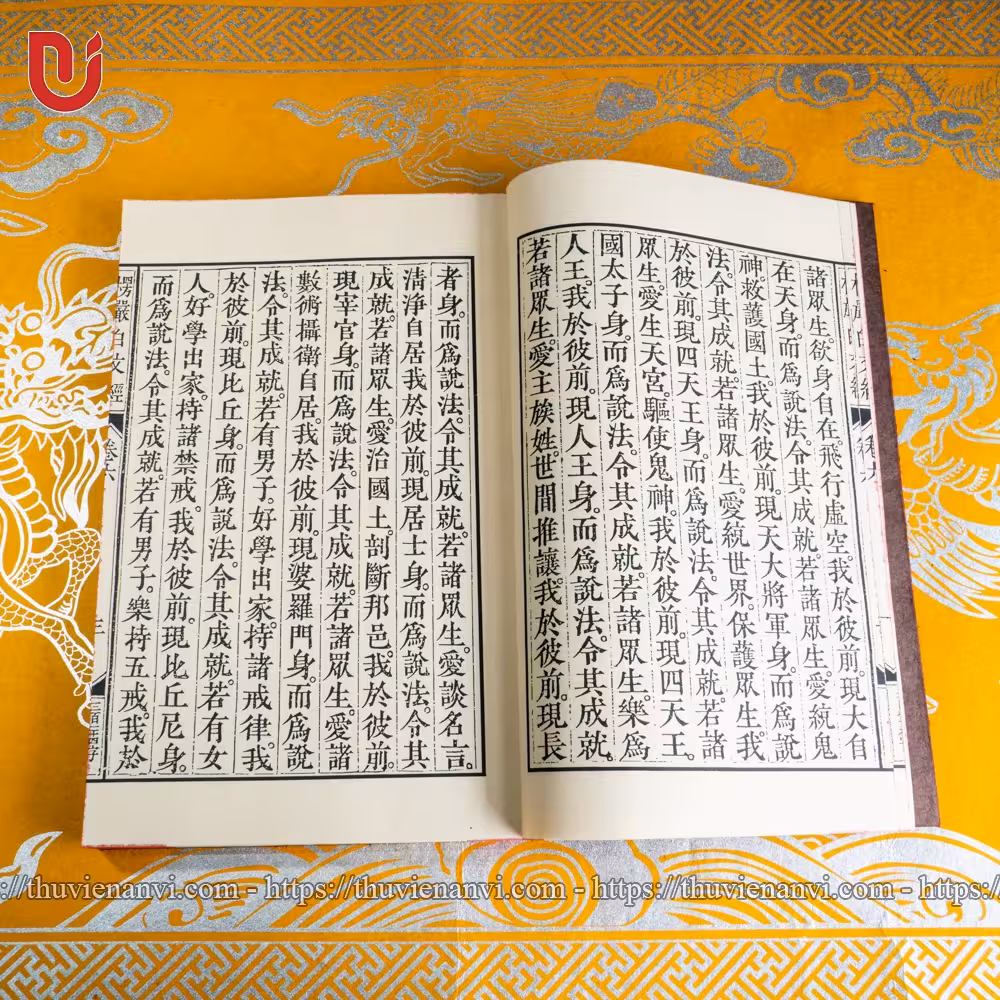 諸眾生。欲身自在。飛行虛空。我於彼前。現大自
在天身。而爲說法。令其成就。若諸眾生。愛統鬼
神。救護國土。我於彼前。現天大將軍身。而爲說
法。令其成就。若諸眾生。愛統世界。保護眾生。我
於彼前。現四天王身。而爲說法。令其成就。若諸
眾生。愛生天宮。驅使鬼神。我於彼前。現四天王。
國太子身。而爲說法。令其成就。若諸眾生。樂爲
人王。我於彼前。現人王身。而爲說法。令其成就。
若諸眾生。愛王族姓。世間推讓。我於彼前。現長
者身。而爲說法。令其成就。若諸眾生。愛談名言。
清淨自居。我於彼前。現居士身。而爲說法。令其
成就。若諸眾生。愛治國土。剖斷邦邑。我於彼前。
現宰官身。而爲說法。令其成就。若諸眾生。愛諸
數術。攝衛自居。我於彼前。現婆羅門身。而爲說
法。令其成就。若有男子。好學出家。持諸戒律。我
於彼前。現比丘身。而爲說法。令其成就。若有女
人。好學出家。持諸禁戒。我於彼前。現比丘尼身。
而爲說法。令其成就。若有男子。樂持五戒。我於
楞嚴白文經 卷六 三
https://thuvienanvi.com - https://thuvienanvi.com - https://thuvienanvi.com